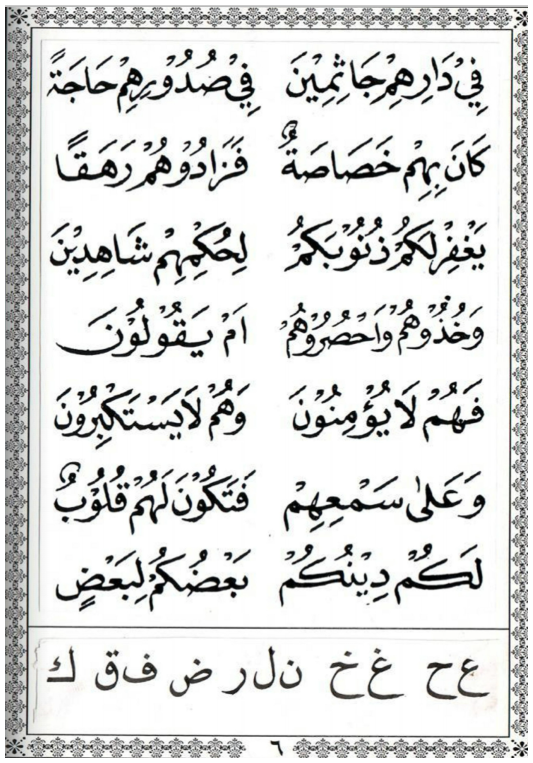 فِيْ دَارِهِمْ جَاثِمِيْنَ فِيْ صُدُوْرِهِمْ حَاجَةً
كَانَ بِهِمْ خَصَاصَةٌ فَزَادُوْهُمْ رَهَقًا
يَغْفِرْلَكُمْ ذُنُوْبَكُمْ لِحُكْمِهِمْ شَاهِدِيْنَ
وَخُذُوْهُمْ وَاحْصُرُوْهُمْ اَمْ يَقُوْلُوْنَ
فَهُمْ لَا يُؤْمِنُوْنَ وَهُمْ لَا يَسْتَكْبِرُوْنَ
وَعَلىٰ سَمْعِهِمْ فَتَكُوْنَ لَهُمْ قُلُوْبٌ
لَكُمْ دِيْنُكُمْ بَعْضُكُمْ لِبَعْضٍ
ع ح غ خ ن ل ر ض ف ق ك
٦